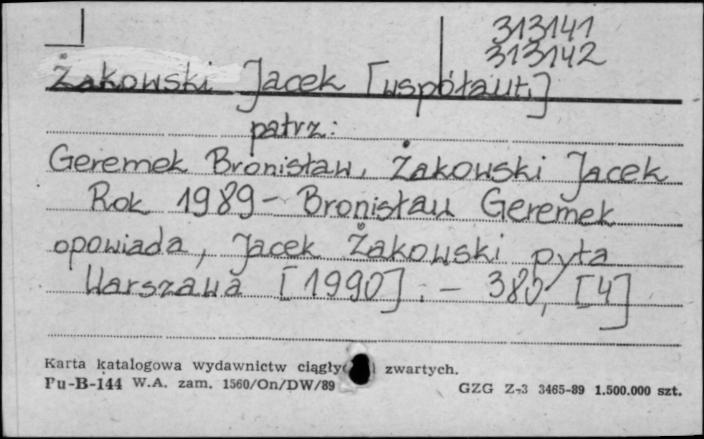 313141
313142
Żakowski Jacek [współaut.]
patrz:
Geremek Bronisław, Żakowski Jacek
Rok 1989 - Bronisław Geremek
opowiada, Jacek Żakowski pyta
Warszawa [1990]. - 380, [4]
Karta katalogowa wydawnictw ciągły i zwartych.
Pu-B-144 W.A. zam. 1560/On/DW/89 GZG Z-3 3465-89 1.500.000 szt.